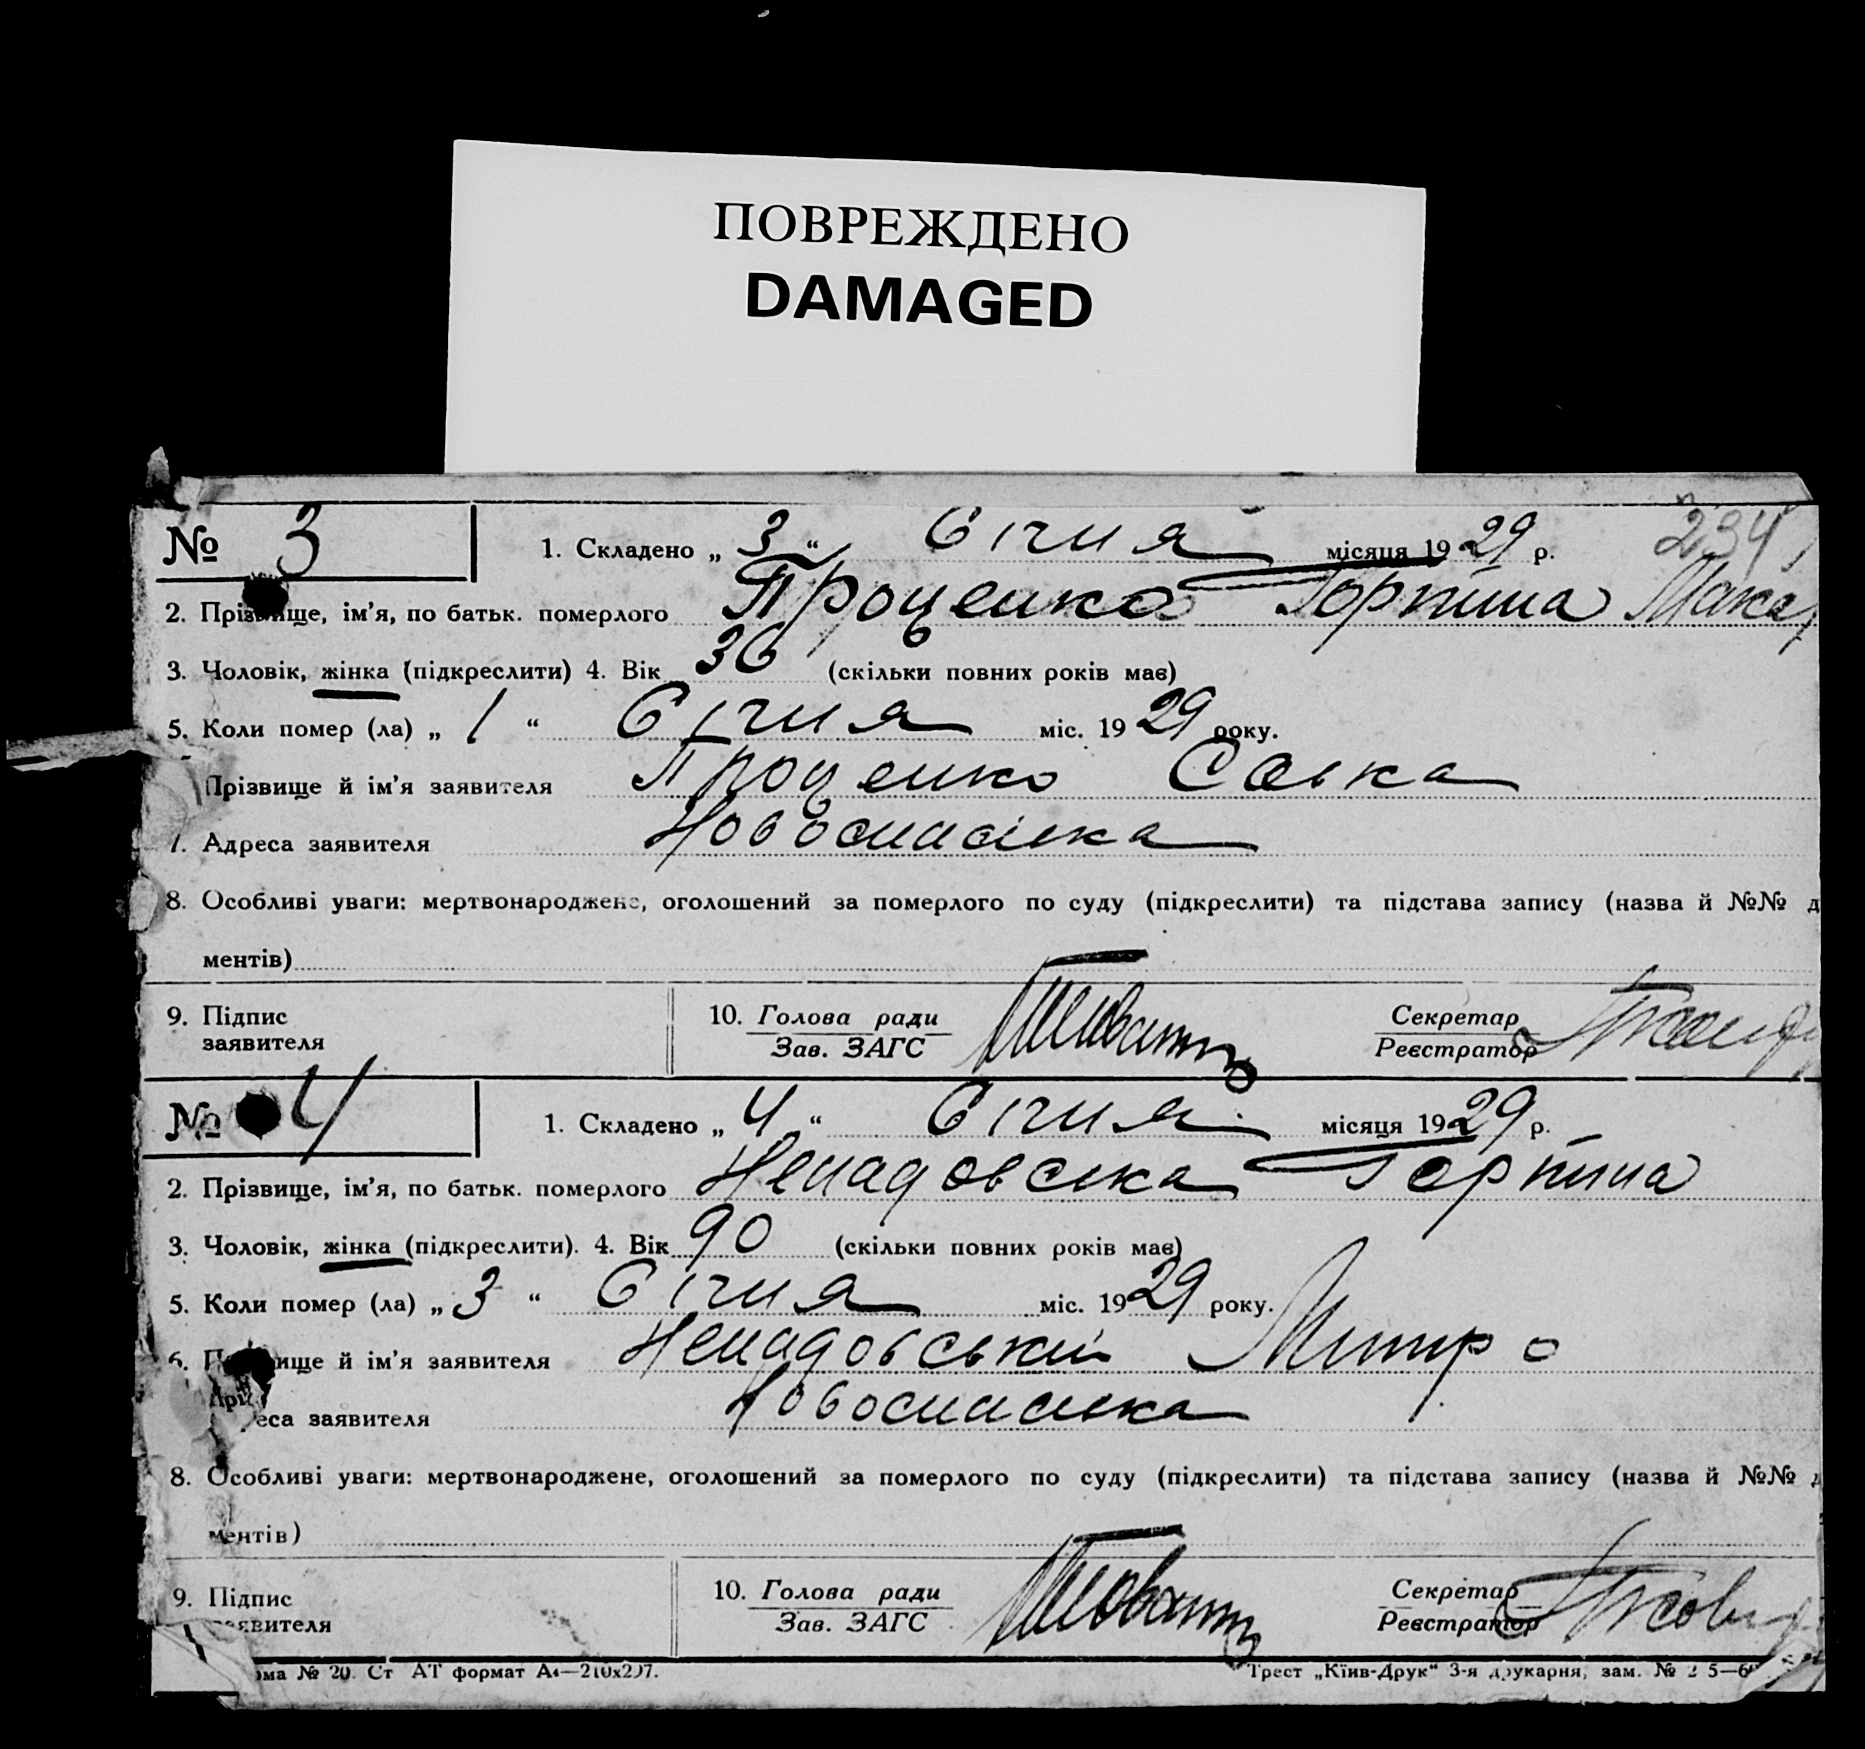 ПОВРЕЖДЕНО
DAMAGED
234
№ 3
1. Складено „ 3 “ Січня місяця 1929 р.
2. Прізвище, ім’я, по батьк. померлого Проценко Горпина Макар
3. Чоловік, жінка (підкреслити) 4. Вік 36 (скільки повних років має)
5. Коли помер (ла) „ 1 “ Січня міс. 1929 року.
Прізвище й ім’я заявителя Проценко Савка
7. Адреса заявителя Новоспаська
8. Особливі уваги: мертвонароджене, оголошений за померлого по суду (підкреслити) та підстава запису (назва й №№ д
ментів)
9. Підпис заявителя
10. Голова ради
Зав. ЗАГС
Секретар
Реєстратор
№ 4
1. Складено „ 4 “ Січня місяця 1929 р.
2. Прізвище, ім’я, по батьк. померлого Ненадовська Горпина
3. Чоловік, жінка (підкреслити). 4. Вік 90 (скільки повних років має)
5. Коли помер (ла) „ 3 “ Січня міс. 1929 року.
6. П ище й ім’я заявителя Ненадовський Митро
еса заявителя Новоспаська
8. Особливі уваги: мертвонароджене, оголошений за померлого по суду (підкреслити) та підстава запису (назва й №№ д
ментів)
9. Підпис
явителя
10. Голова ради
Зав. ЗАГС
Секретар
Реєстратор
рма № 20. Ст АТ формат А4—210х297.
Трест „Київ-Друк“ 3-я друкарня, зам. №